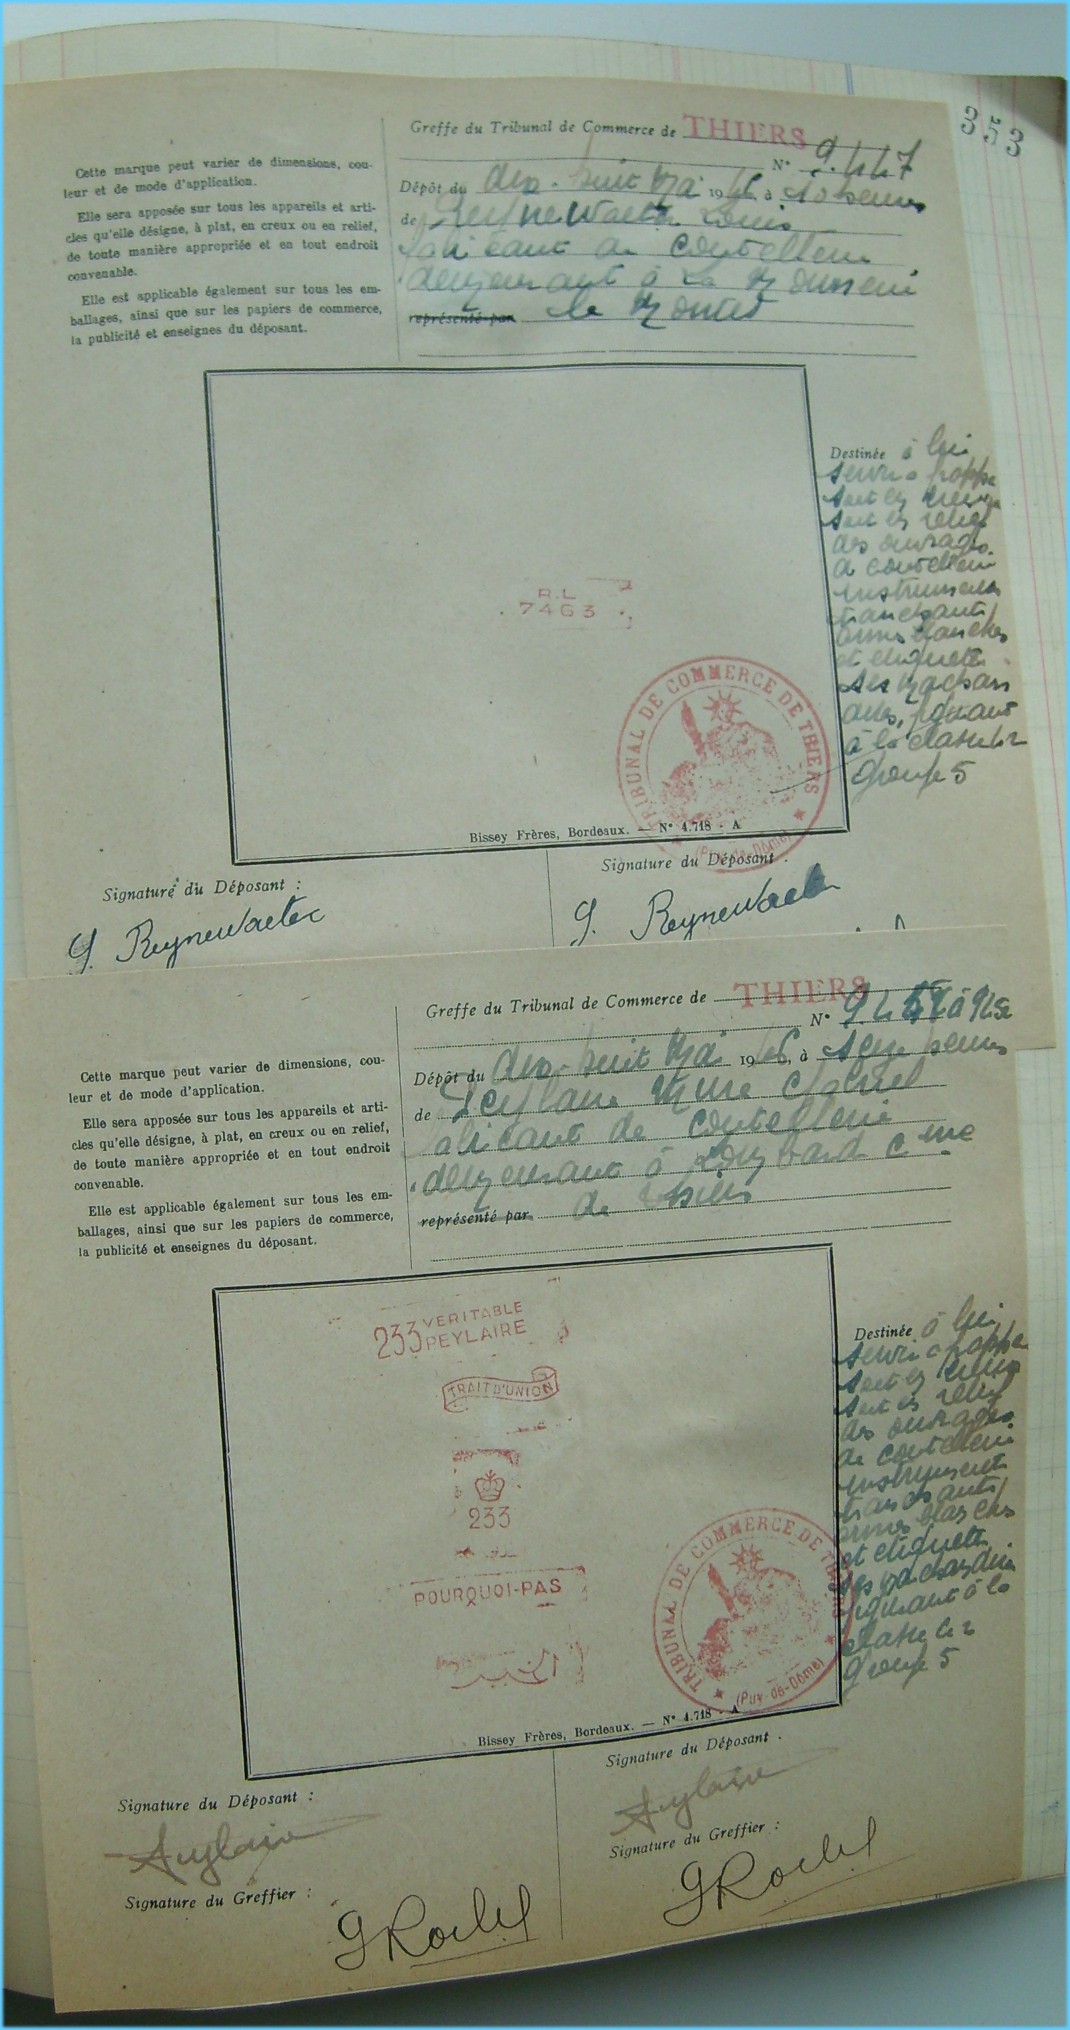 353
Greffe du Tribunal de Commerce de THIERS
N° 9.447
Cette marque peut varier de dimensions, cou-
leur et de mode d'application.
Elle sera apposée sur tous les appareils et arti-
cles qu'elle désigne, à plat, en creux ou en relief,
de toute manière appropriée et en tout endroit
convenable.
Elle est applicable également sur tous les em-
ballages, ainsi que sur les papiers de commerce,
la publicité et enseignes du déposant.
Dépôt du dix-huit Mai 1946, à
de Louis
fabricant de coutellerie
demeurant à La Monnerie
représenté par le Montel
Destinée à lui
servir a frapper
soit en creux
soit en relief
des ouvrages
de coutellerie
instruments
tranchants
armes blanches
et étiqueter
ses marchan
dises, figurant
à la classe
Groupe 5
R.L
7463
TRIBUNAL DE COMMERCE DE THIERS
(Puy-de-Dôme)
Bissey Frères, Bordeaux. — N° 4.718 - A
Signature du Déposant :
Signature du Déposant .
Greffe du Tribunal de Commerce de THIERS
N°
Cette marque peut varier de dimensions, cou-
leur et de mode d'application.
Elle sera apposée sur tous les appareils et arti-
cles qu'elle désigne, à plat, en creux ou en relief,
de toute manière appropriée et en tout endroit
convenable.
Elle est applicable également sur tous les em-
ballages, ainsi que sur les papiers de commerce,
la publicité et enseignes du déposant.
Dépôt du dix-huit Mai 1946, à seize heures
de
fabricant de coutellerie
demeurant à
représenté par de Thiers
Destinée à lui
servir a frapper
soit en creux
soit en relief
des ouvrages
de coutellerie
instruments
tranchants
armes blanches
et étiqueter
ses marchandises
figurant à la
classe
Groupe 5
233 VERITABLE
PEYLAIRE
TRAIT D'UNION
233
POURQUOI-PAS
TRIBUNAL DE COMMERCE DE THIERS
(Puy-de-Dôme)
Bissey Frères, Bordeaux. — N° 4.718 - A
Signature du Déposant :
Signature du Déposant .
Signature du Greffier :
Signature du Greffier :